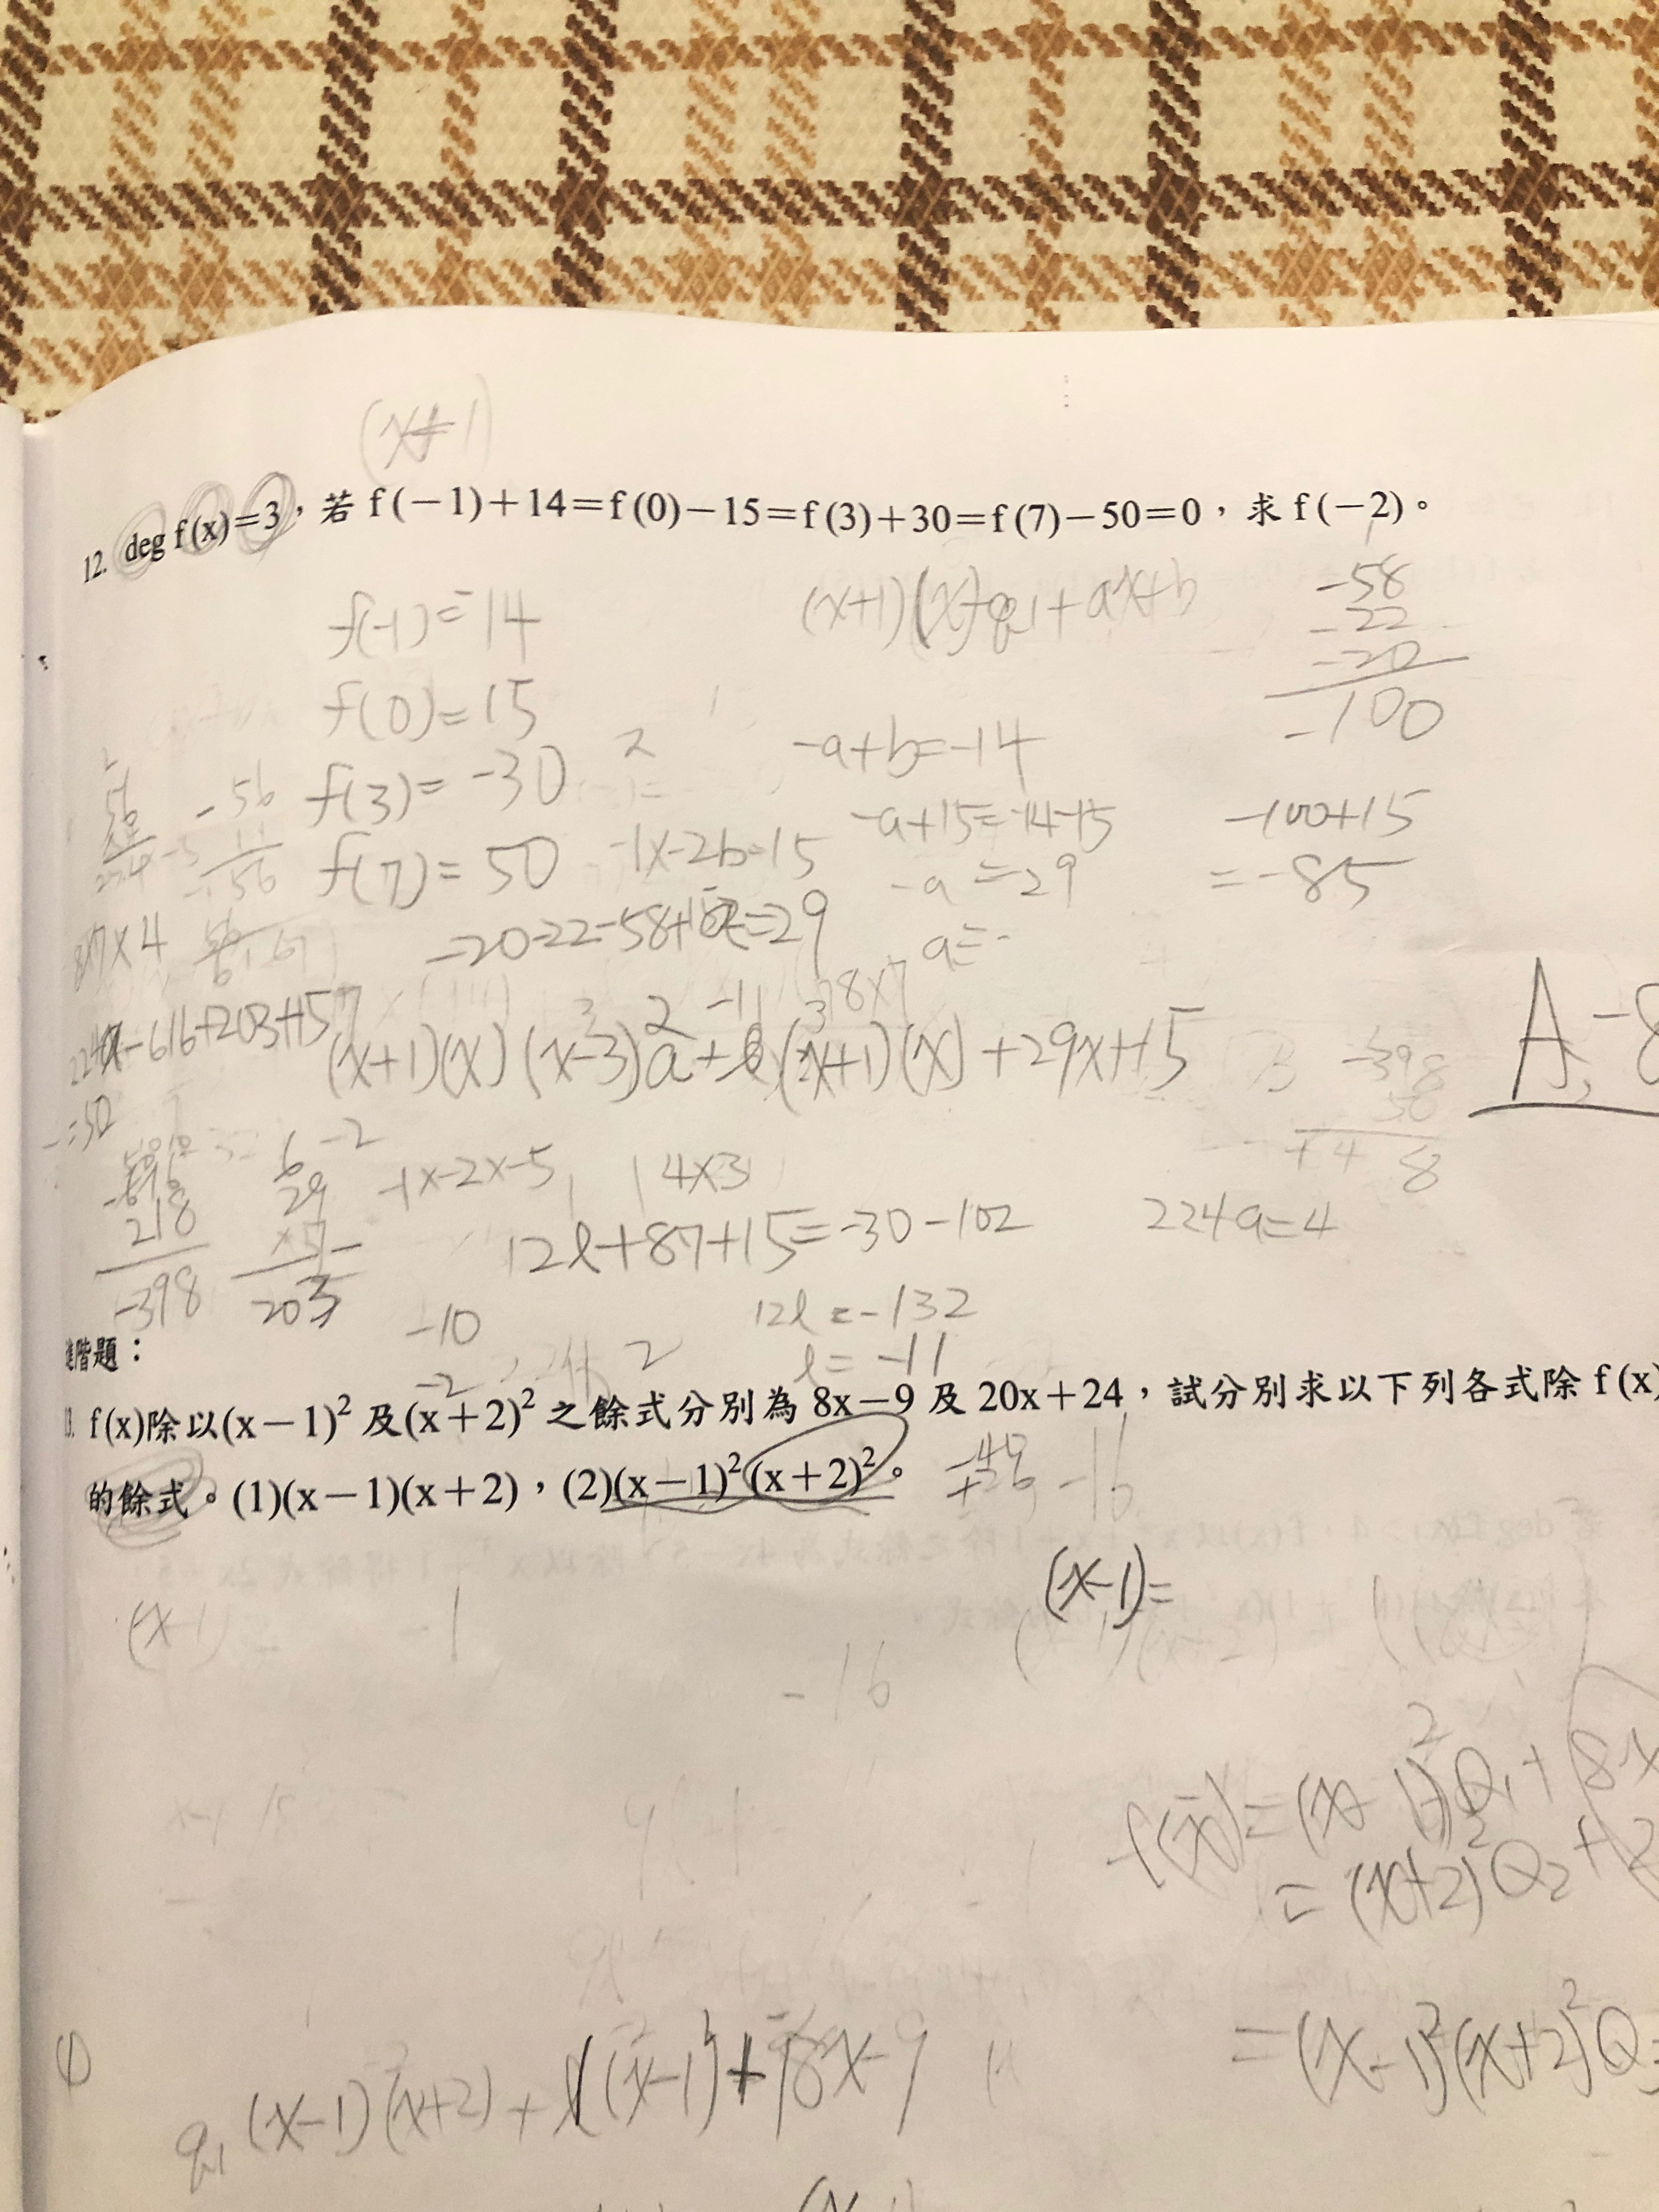 (x+1)
12. deg f(x)=3，若 f(-1)+14=f(0)-15=f(3)+30=f(7)-50=0，求 f(-2)。
f(-1)=-14
(x+1)(x)q1+ax+b
-58
-22
-20
-100
f(0)=15
-a+b=-14
f(3)=-30
-56
-a+15=-14-15
-100+15
f(7)=50
-1x-2b=15
-a=-29
=-85
87x4
-20-22-58+15
=29
a=-
-616+203+15
(x+1)(x)(x-3)a+l(x+1)(x)+29x+15
2
-11
8x7
A,-8
=50
-398
50
8
6
-2
29
-1x-2x-5
4x3
218
-398
203
12l+87+15=-30-102
224a=4
-10
12l=-132
-2
2
l=-11
進階題：
f(x)除以(x-1)² 及(x+2)² 之餘式分別為 8x-9 及 20x+24，試分別求以下列各式除 f(x)
的餘式。(1)(x-1)(x+2)，(2)(x-1)²(x+2)²。
-16
(x-1)=
(x-1)
-1
-16
f(x)=(x-1)²Q1+8x
=(x+2)²Q2+2
=(x-1)²(x+2)²Q3
(1)
q1(x-1)(x+2)+l(x-1)+8x-9